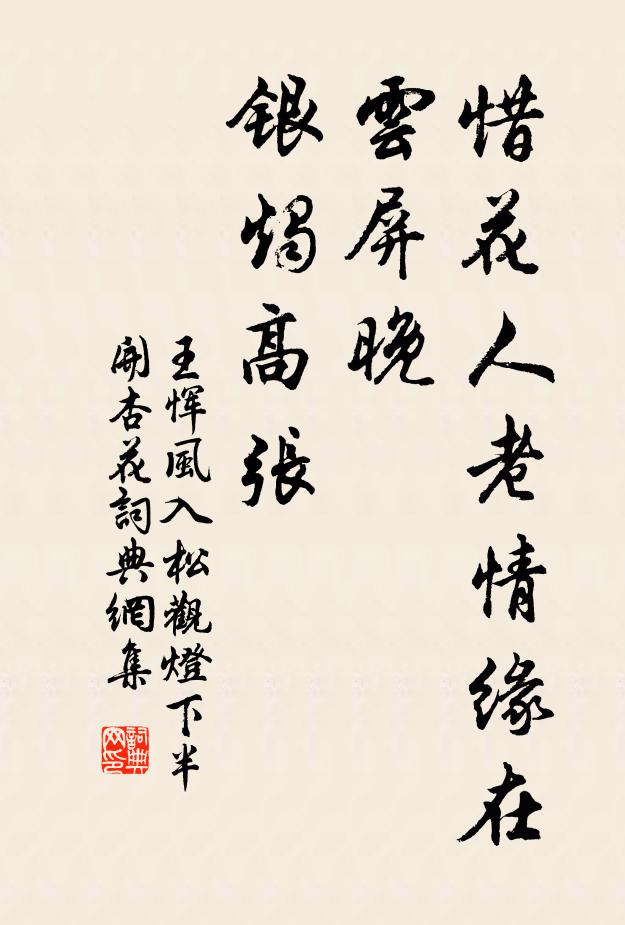 惜花人老情緣在
雲屏晚
銀燭高張
王惲風入松觀燈下半
開杏花詞典網集
詞典
网印